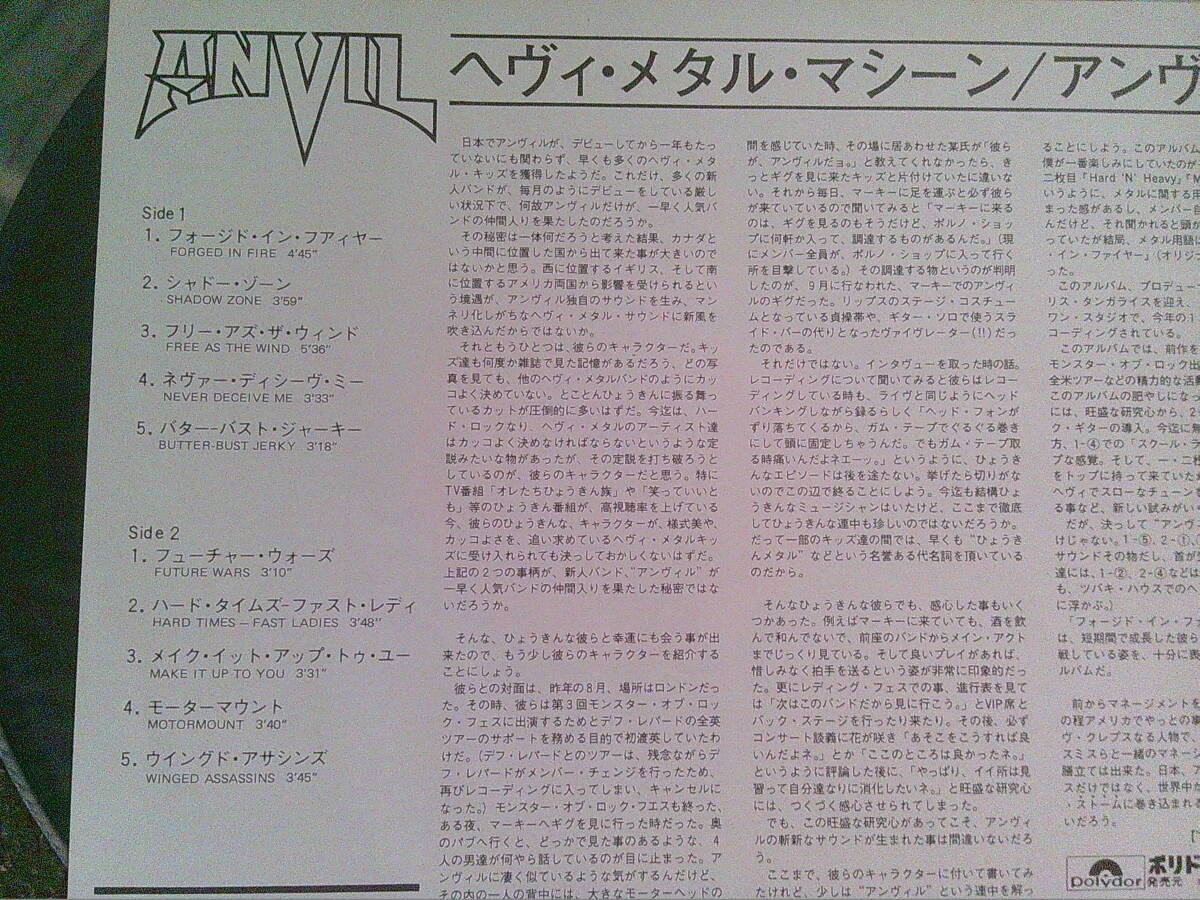 ANVIL
ヘヴィ・メタル・マシーン/アンヴ
Side 1
1. フォージド・イン・フアィヤー
FORGED IN FIRE 4'45"
2. シャドー・ゾーン
SHADOW ZONE 3'59"
3. フリー・アズ・ザ・ウィンド
FREE AS THE WIND 5'36"
4. ネヴァー・ディシーヴ・ミー
NEVER DECEIVE ME 3'33"
5. バター-バスト・ジャーキー
BUTTER-BUST JERKY 3'18"
Side 2
1. フューチャー・ウォーズ
FUTURE WARS 3'10"
2. ハード・タイムズ-ファスト・レディ
HARD TIMES – FAST LADIES 3'48"
3. メイク・イット・アップ・トゥ・ユー
MAKE IT UP TO YOU 3'31"
4. モーターマウント
MOTORMOUNT 3'40"
5. ウイングド・アサシンズ
WINGED ASSASSINS 3'45"
日本でアンヴィルが、デビューしてから一年もたっ
ていないにも関わらず、早くも多くのヘヴィ・メタ
ル・キッズを獲得したようだ。これだけ、多くの新
人バンドが、毎月のようにデビューをしている厳し
い状況下で、何故アンヴィルだけが、一早く人気バ
ンドの仲間入りを果たしたのだろうか。
その秘密は一体何だろうと考えた結果、カナダと
いう中間に位置した国から出て来た事が大きいので
はないかと思う。西に位置するイギリス、そして南
に位置するアメリカ両国から影響を受けられるとい
う境遇が、アンヴィル独自のサウンドを生み、マン
ネリ化しがちなヘヴィ・メタル・サウンドに新風を
吹き込んだからではないか。
それともうひとつは、彼らのキャラクターだ。キッ
ズ達も何度か雑誌で見た記憶があるだろう、どの写
真を見ても、他のヘヴィ・メタルバンドのようにカッ
コよく決めていない。とことんひょうきんに振る舞っ
ているカットが圧倒的に多いはずだ。今迄は、ハー
ド・ロックなり、ヘヴィ・メタルのアーティスト達
はカッコよく決めなければならないというような定
説みたいな物があったが、その定説を打ち破ろうと
しているのが、彼らのキャラクターだと思う。特に
TV番組「オレたちひょうきん族」や「笑っていいと
も」等のひょうきん番組が、高視聴率を上げている
今、彼らのひょうきんな、キャラクターが、様式美や、
カッコよさを、追い求めているヘヴィ・メタルキッ
ズに受け入れられても決っしておかしくないはずだ。
上記の2つの事柄が、新人バンド、“アンヴィル”が
一早く人気バンドの仲間入りを果たした秘密ではな
いだろうか。
そんな、ひょうきんな彼らと幸運にも会う事が出
来たので、もう少し彼らのキャラクターを紹介する
ことにしよう。
彼らとの対面は、昨年の8月、場所はロンドンだっ
た。その時、彼らは第3回モンスター・オブ・ロッ
ク・フェスに出演するためとデフ・レパードの全英
ツアーのサポートを務める目的で初渡英していたわ
けだ。(デフ・レパードとのツアーは、残念ながらデ
フ・レパードがメンバー・チェンジを行ったため、
再びレコーディングに入ってしまい、キャンセルに
なった。)モンスター・オブ・ロック・フエスも終った、
ある夜、マーキーへギグを見に行った時だった。奥
のパブへ行くと、どっかで見た事のあるような、4
人の男達が何やら話しているのが目に止まった。ア
ンヴィルに凄く似ているような気がするんだけど、
その内の一人の背中には、大きなモーターヘッドの
間を感じていた時、その場に居あわせた某氏が「彼ら
が、アンヴィルだョ。」と教えてくれなかったら、き
っとギグを見に来たキッズと片付けていたに違いな
い。それから毎日、マーキーに足を運ぶと必ず彼ら
が来ているので聞いてみると「マーキーに来る
のは、ギグを見るのもそうだけど、ポルノ・ショッ
プに何軒か入って、調達するものがあるんだ。」(現
にメンバー全員が、ポルノ・ショップに入って行く
所を目撃している。)その調達する物というのが判明
したのが、9月に行なわれた、マーキーでのアンヴィ
ルのギグだった。リップスのステージ・コスチュー
ムとなっている貞操帯や、ギター・ソロで使うスラ
イド・バーの代りとなったヴァイヴレーター(!!)だっ
たのである。
それだけではない。インタヴューを取った時の話。
レコーディングについて聞いてみると彼らはレコー
ディングしている時も、ライヴと同じようにヘッド
バンキングしながら録るらしく「ヘッド・フォンが
ずり落ちてくるから、ガム・テープでぐるぐる巻き
にして頭に固定しちゃうんだ。でもガム・テープ取
る時痛いんだよネエーッ。」というように、ひょうき
んなエピソードは後を途たない。挙げたら切りがな
いのでこの辺で終ることにしよう。今迄も結構ひょ
うきんなミュージシャンはいたけど、ここまで徹底
してひょうきんな連中も珍しいのではないだろうか。
だって一部のキッズ達の間では、早くも“ひょうき
んメタル”などという名誉ある代名詞を頂いている
のだから。
そんなひょうきんな彼らでも、感心した事もいく
つかあった。例えばマーキーに来ていても、酒を飲
んで和んでないで、前座のバンドからメイン・アクト
までじっくり見ている。そして良いプレイがあれば、
惜しみなく拍手を送るという姿が非常に印象的だっ
た。更にレディング・フェスでの事、進行表を見て
は「次はこのバンドだから見に行こう。」とVIP席と
バック・ステージを行ったり来たり。その後、必ず
コンサート談義に花が咲き「あそこをこうすれば良
いんだよネ。」とか「ここのところは良かったネ。」
というように評論した後に、「やっぱり、イイ所は見
習って自分達なりに消化したいネ。」と旺盛な研究心
には、つくづく感心させられてしまった。
でも、この旺盛な研究心があってこそ、アンヴィ
ルの斬新なサウンドが生まれた事は間違いないだろ
う。
ここまで、彼らのキャラクターに付いて書いてみ
たけれど、少しは“アンヴィル”という連中を解っ
ることにしよう。このアルバム
僕が一番楽しみにしていたのが
二枚目「Hard 'N' Heavy」「M
いうように、メタルに関する
まった感があるし、メンバー
んだけど、それ聞かれると頭が
っていたが結局、メタル用語
・イン・ファイヤー」(オリジ
った。
このアルバム、プロデュー
リス・タンガライスを迎え、
ワン・スタジオで、今年の
コーディングされている。
このアルバムでは、前作を
モンスター・オブ・ロック出
全米ツアーなどの精力的な活
このアルバムの肥やしになっ
には、旺盛な研究心から、2
ク・ギターの導入。今迄に無
方、1-④での「スクール・
ブな感覚。そして、一・二枚
をトップに持って来ていた
ヘヴィでスローなチューン
る事など、新しい試みがい
だが、決っして“アンヴ
けじゃない。1-⑤、2-①、
サウンドその物だし、首が
達には、1-②、2-④などは
も、ツバキ・ハウスでのヘ
に浮かぶ。)
「フォージド・イン・フ
は、短期間で成長した彼ら
戦している姿を、十分に表
ルバムだ。
前からマネージメントを
の程アメリカでやっとの事
ヴ・クレブスなる人物で、
スミスらと一緒のマネー
膳立ては出来た。日本、ア
スだけではなく、世界中
・ストームに巻き込まれる
いだろう。
polydor
ポリド
発売元